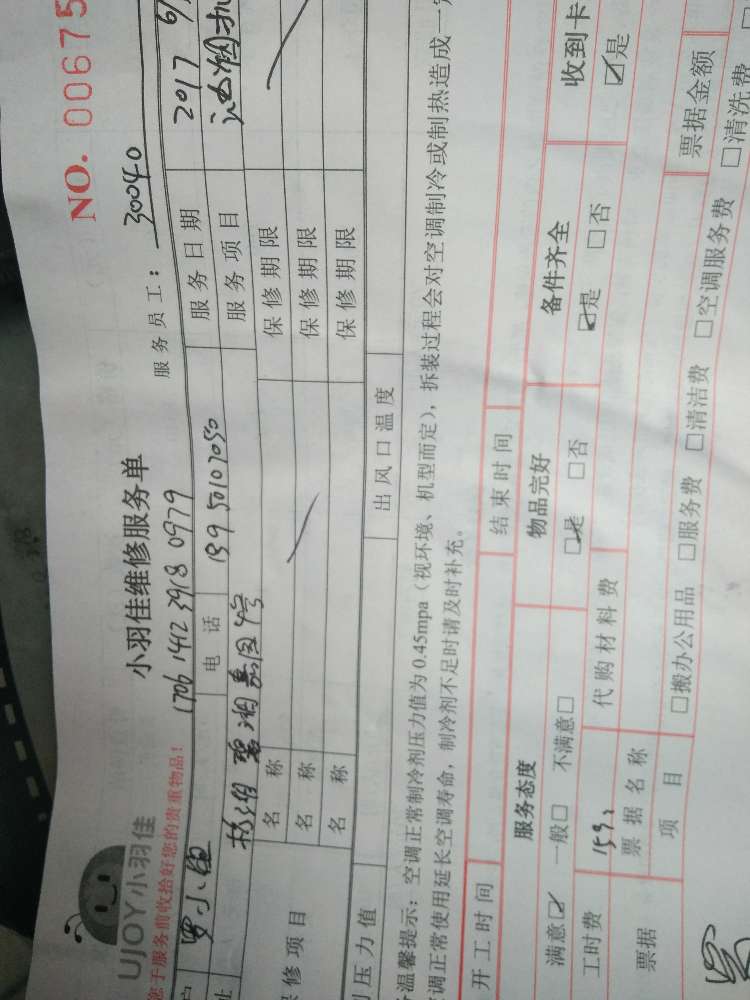 NO. 00675
UJOY小羽佳
小羽佳维修服务单
服务员工：30040
您于服务前收拾好您的贵重物品！
1706 1412 3918 0979
户 罗小姐 电话 服务日期 2017
址 服务项目
保修项目 名称 保修期限
名称 保修期限
名称 保修期限
压力值 出风口温度
温馨提示：空调正常制冷剂压力值为0.45mpa（视环境、机型而定），拆装过程会对空调制冷或制热造成一定
调正常使用延长空调寿命，制冷剂不足时请及时补充。
开工时间 结束时间
服务态度 物品完好 备件齐全 收到卡
满意☑ 一般□ 不满意□ ☑是 □否 ☑是 □否 ☑是
工时费 代购材料费
票据 票据名称 票据金额
项目 □搬办公用品 □服务费 □清洁费 □空调服务费 □清洗费